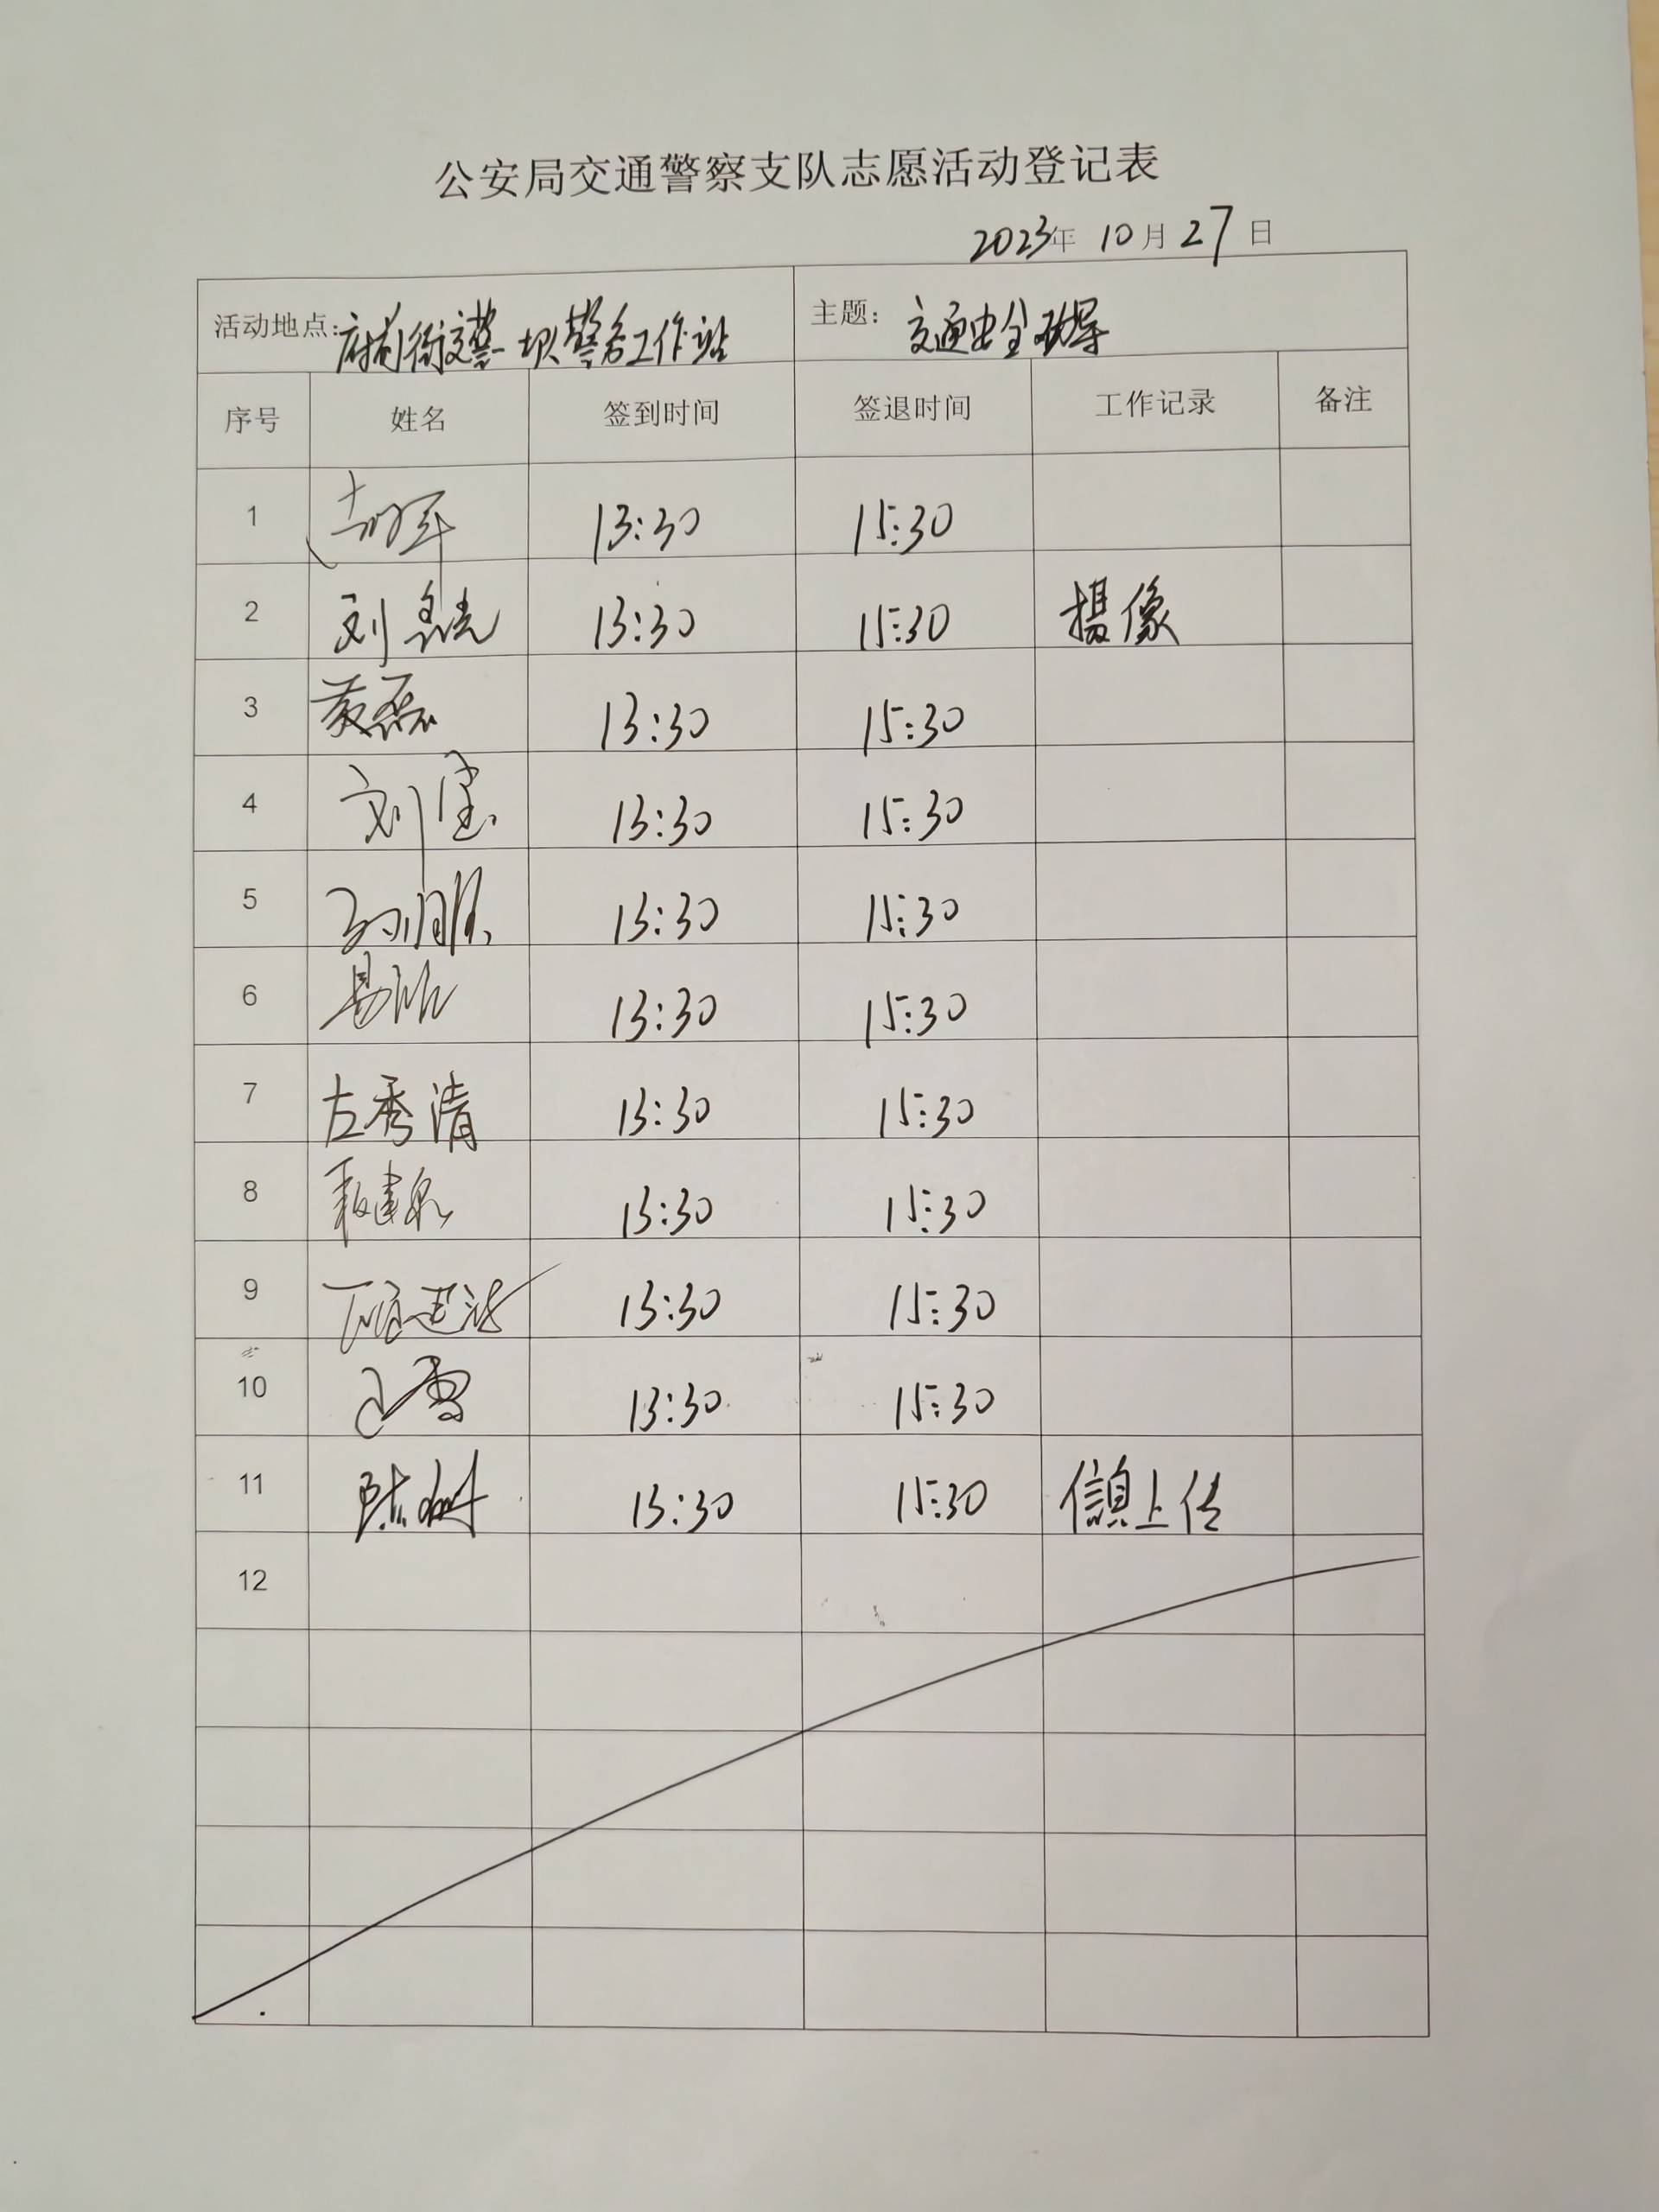 公安局交通警察支队志愿活动登记表
2023年 10月27日
活动地点：府前街交警 坝警务工作站 主题： 交通安全劝导
序号 姓名 签到时间 签退时间 工作记录 备注
1 13:30 15:30
2 刘 13:30 15:30 摄像
3 黄磊 13:30 15:30
4 刘 13:30 15:30
5 13:30 15:30
6 易 13:30 15:30
7 左秀清 13:30 15:30
8 13:30 15:30
9 13:30 15:30
10 13:30 15:30
11 陈 13:30 15:30 信息上传
12